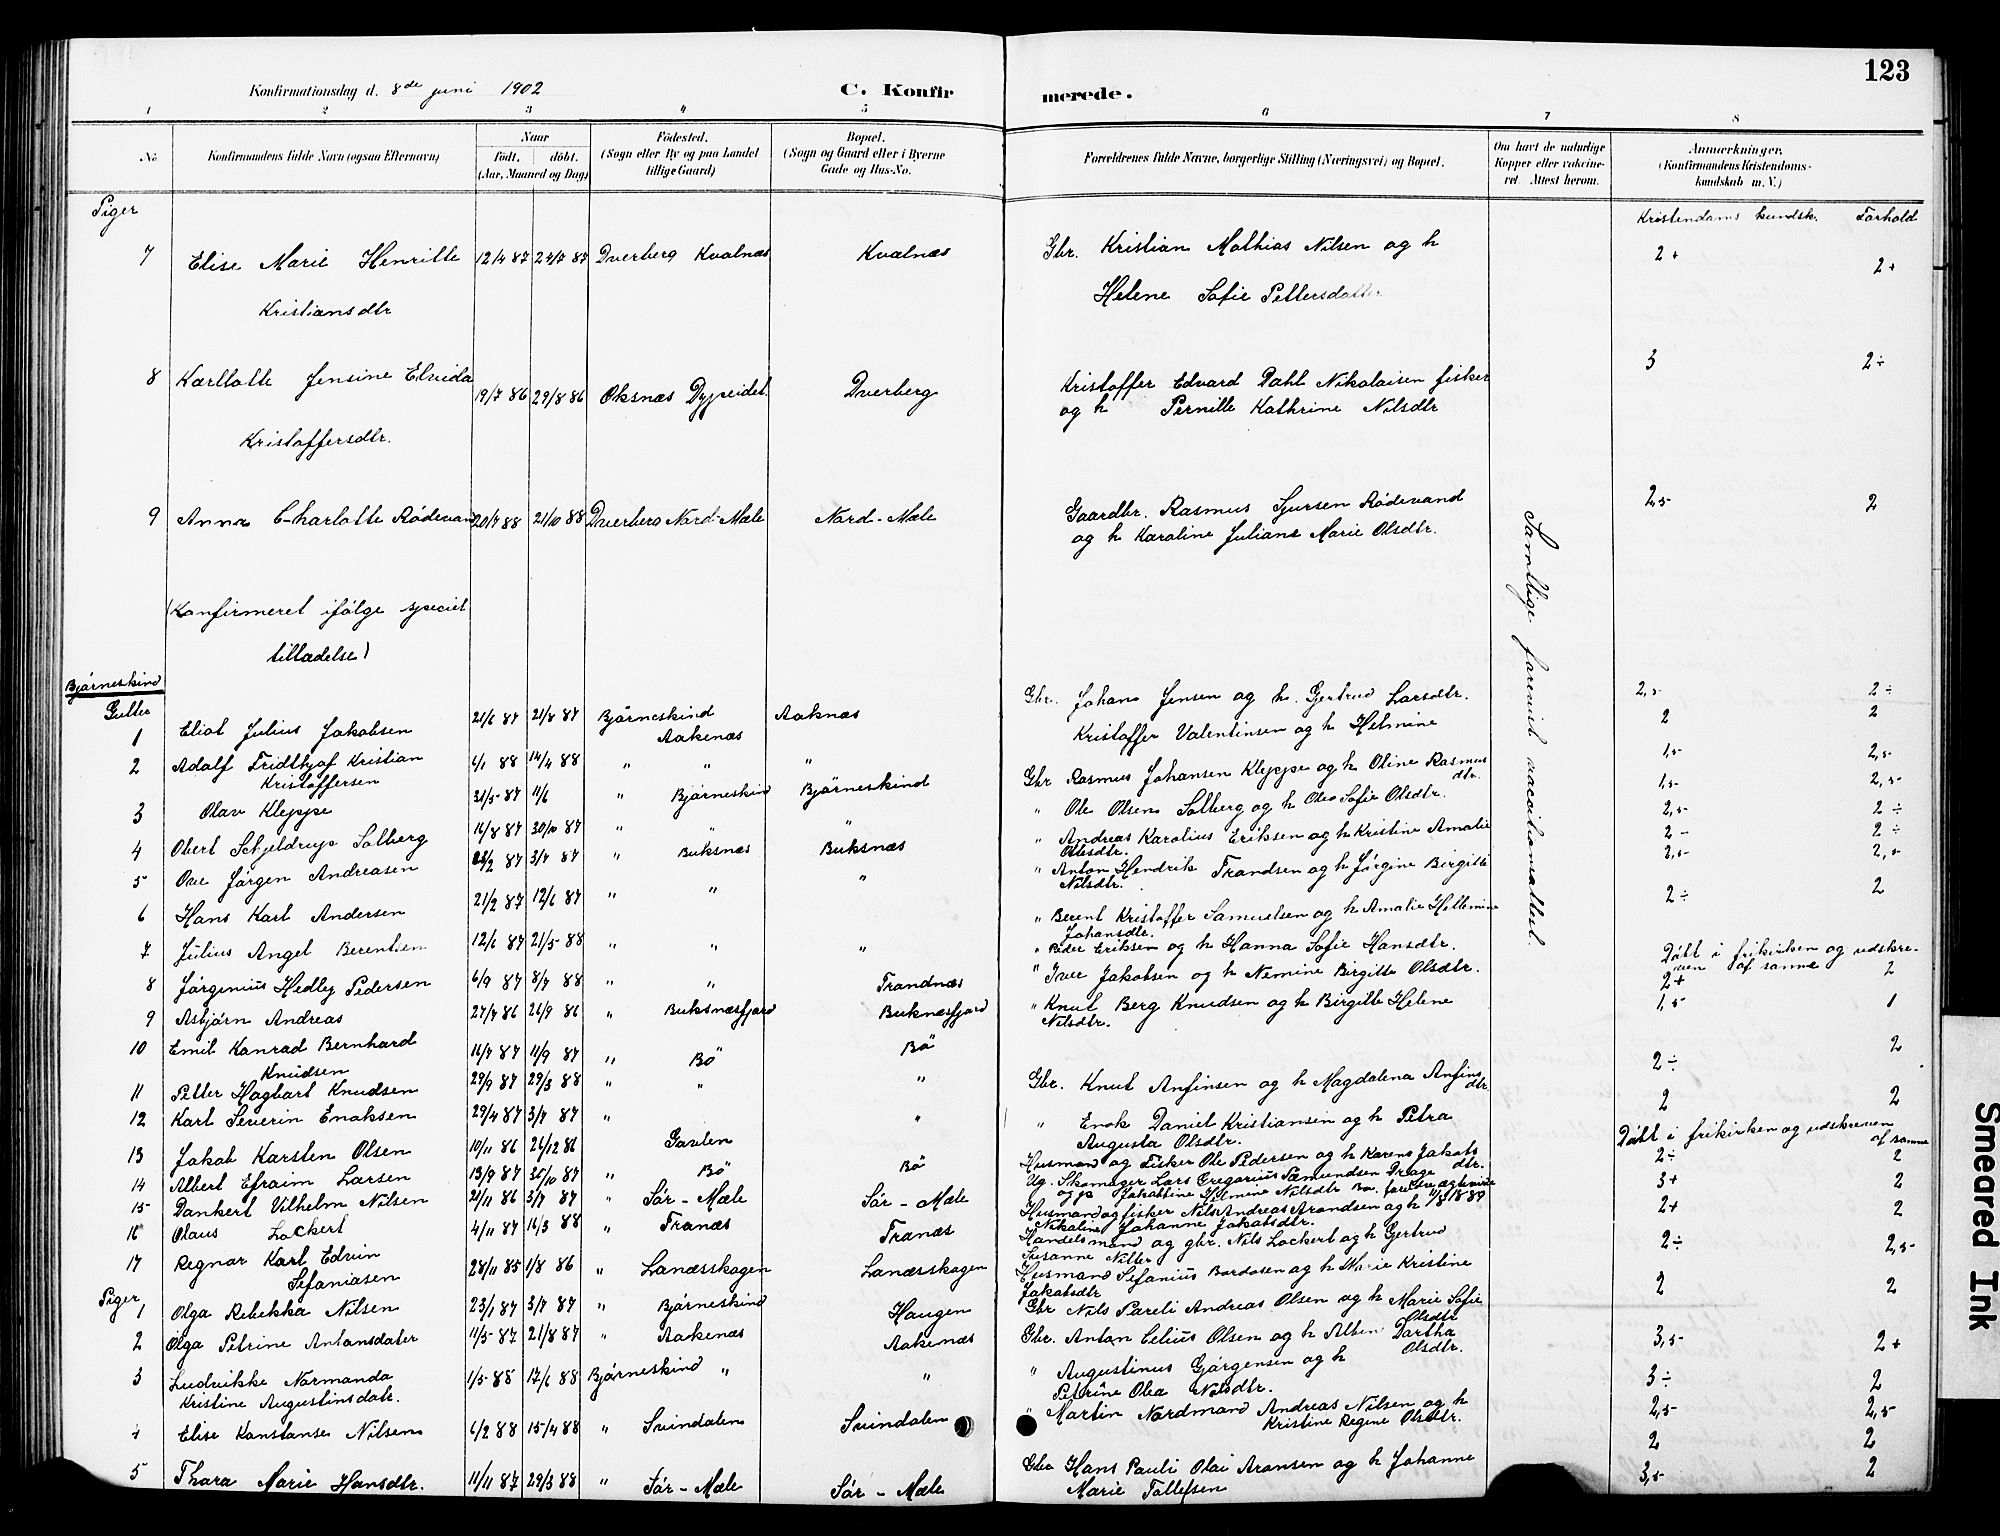 123
Konfirmationsdag d. 8de juni 1902
C. Konfir merede.
1 2 3 4 5 6 7 8
No Konfirmandens fulde Navn (ogsaa Efternavn)
Naar
födt. döbt.
(Aar, Maaned og Dag)
Födested.
(Sogn eller By og paa Landet
tillige Gaard)
Bopæl.
(Sogn og Gaard eller i Byerne
Gade og Hus-No.
Forældrenes fulde Navne, borgerlige Stilling (Næringsvei) og Bopæl.
Om havt de naturlige
Kopper eller vaccine-
ret. Attest herom.
Anmærkninger,
(Konfirmandens Kristendoms-
kundskab m. V.)
Piger
Kristendoms kundsk. Forhold
7 Elise Marie Henritte 12/4 87 24/7 87 Dverberg Kvalnæs Kvalnæs Gbr. Kristian Mathias Nilsen og h 2+ 2+
Kristiansdtr Helene Sofie Pettersdatter
8 Karllotte Jensine Elvida 19/7 86 29/8 86 Oksnæs Dypeidet Dverberg Kristoffer Edvard Dahl Nikolaisen fisker 3 2÷
Kristoffersdtr. og h Pernille Kathrine Nilsdtr
9 Anna Charlotte Rödevand 20/7 88 21/10 88 Dverberg Nord-Mæle Nord-Mæle Gaardbr. Rasmus Sjursen Rödevand 2,5 2
og h Karoline Juliane Marie Olsdtr.
(Konfirmeret ifölge speciel
tilladelse)
Samtlige forevist vaccinationsattest.
Bjørneskind
Gutter
1 Eliot Julius Jakobsen 21/6 87 21/8 87 Bjørneskind Aaknæs Gbr. Johans Jensen og h. Gertrud Larsdtr. 2,5 2÷
Aakenæs
2 Adolf Fridthjof Kristian 6/1 88 14/4 88 " " " Kristoffer Valentinsen og h Helmine 2 2
Kristoffersen
3 Olav Kleppe 31/5 87 11/6 " Bjørneskind Bjørneskind Gbr Rasmus Johansen Kleppe og h Oline Rasmus 1,5 2,5
dtr.
4 Obert Schjeldrup Solberg 14/8 87 30/10 87 " " " " Ole Olsen Solberg og h Olea Sofie Olsdtr. 1,5 2,5
5 Ove Jørgen Andreasen 3/7 87 " Buksnæs Buksnæs " Andreas Karolius Eriksen og h Kristine Amalie 2,5 2÷
Olsdtr.
6 Hans Karl Andersen 21/2 87 12/6 87 " " " " Anton Hendrik Frandsen og h Jørgine Birgitte 2- 2÷
Nilsdtr. 2,5 2,5
7 Julius Angel Berentsen 12/6 87 21/5 88 " " " " Berent Kristoffer Samuelsen og h Amalie Hellemine 2÷ 2
Johansdtr.
8 Jørgenius Hedley Pedersen 6/9 87 8/7 88 " " Frandnæs " Peder Eriksen og h Hanna Sofie Hansdtr. Døbt i frikirken og udskre-
ven af samme
9 Asbjørn Andreas 27/7 86 26/9 86 " Buksnæsfjord Buknæsfjord " Iver Jakobsen og h Nemine Birgitte Olsdtr. 2+ 2
10 Emil Konrad Bernhard 16/7 87 11/9 87 " Bö Bö " Knut Berg Knudsen og h Birgitte Helene 1,5 1
Knudsen Nilsdtr.
11 Petter Hagbart Knudsen 29/9 87 29/3 88 " " " Gbr. Knut Anfinsen og h Magdalena Anfins 2÷ 2
dtr.
12 Karl Severin Enoksen 29/4 87 3/7 87 " " " Enok Daniel Kristiansen og h Petra 2 2
Augusta Olsdtr.
Døbt i frikirken og udskreven
af samme
13 Jakob Karsten Olsen 10/11 86 26/12 86 Gavlen Husmand og Fisker Ole Pedersen og h Karen Jakobs 2÷ 2
dtr.
14 Albert Efraim Larsen 13/9 87 30/10 87 " Bö Bö Ug. Skomager Lars Gregorius Sæmundsen Drage 3+ 2
og p Jakobine Helmine Nilsdtr
15 Dankert Vilhelm Nilsen 21/11 86 3/7 87 " Sör-Mæle Sör-Mæle Husmand og fisker Nils Andreas Arondsen og h 2+ 2
Nikoline Johanne Jakobsdtr.
16 Olaus Lockert 4/11 87 16/3 88 " Franæs Franæs Handelsmand og gbr. Nils Lockert og h Gertrud 2÷ 2,5
Susanne
17 Regnar Karl Edvin 28/11 85 1/8 86 " Lanæsskogen Lanæsskogen Husmand Sefanius Bordosen og h Marie Kristine 2 2
Sefaniasen Jakobsdtr
Piger
1 Olga Rebekka Nilsen 23/1 87 3/7 87 " Bjørneskind Haugen Gbr Nils Pareli Andreas Olsen og h Marie Sofie 3,5 2+
Olsdtr
2 Olga Petrine Antonsdater 11/5 87 21/8 87 " Aakenæs Aakenæs Gbr. Anton Celius Olsen og h Alben Dorthea 3÷ 2
Olsdtr.
3 Ludvikke Normanda 1/5 88 17/6 88 Bjørneskind " " " Augustinus Gjørgensen og h 2,5 2,5
Kristine Augustinsdatr. Petrine Olea Nilsdtr.
4 Elise Konstanse Nilsen 6/2 88 15/4 88 " Svindalen Svindalen " Martin Nordmand Andreas Nilsen og h 2 2
Kristine Regine Olsdtr.
5 Thara Marie Hansdtr. 11/11 87 29/3 88 " Sör-Mæle Sör-Mæle Gbr Hans Pauli Olai Aronsen og h Johanne 3,5 2
Marie Tollefsen
Smeared Ink